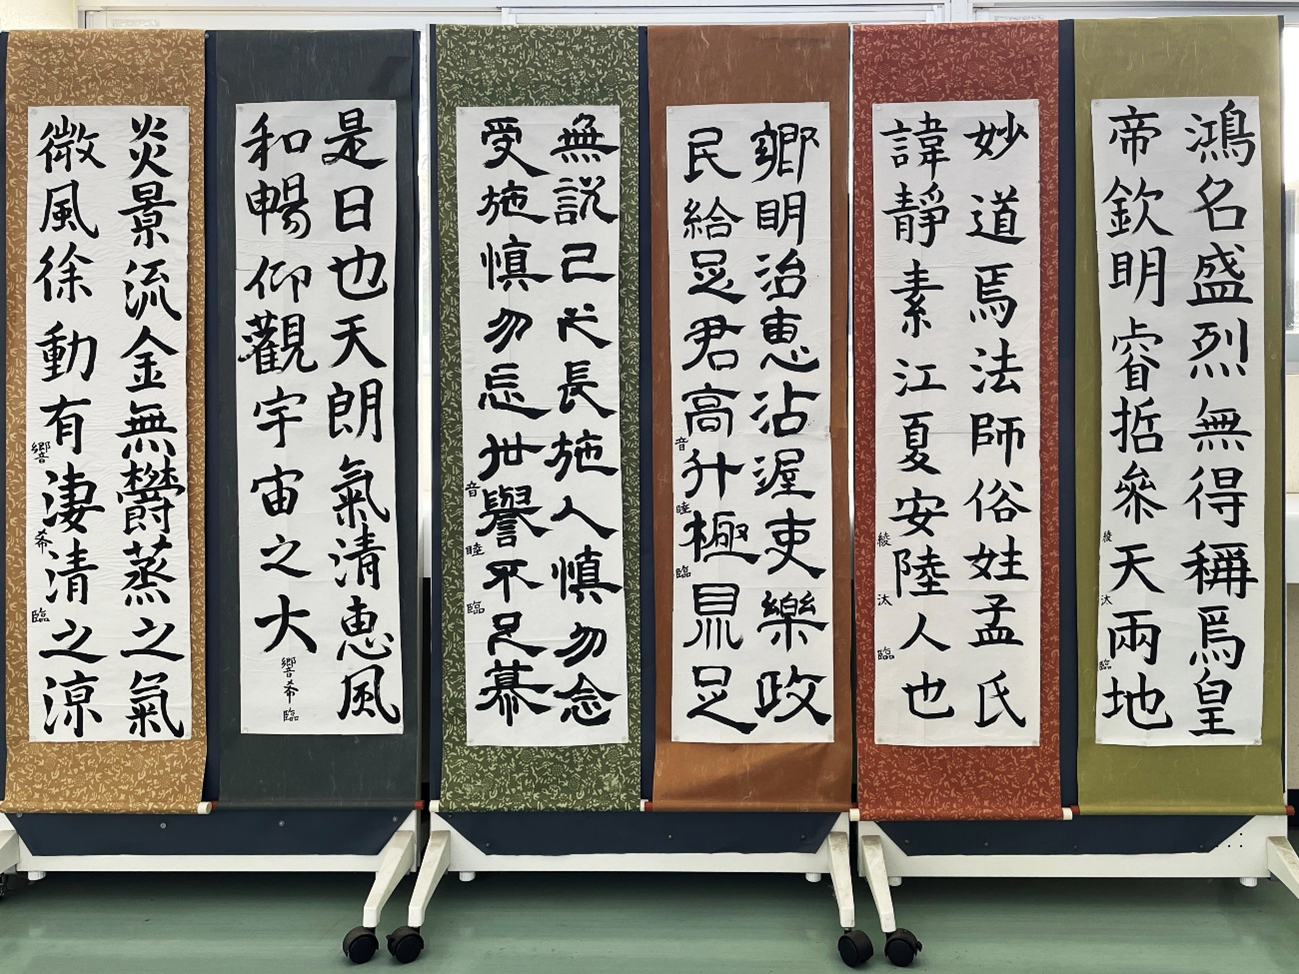 鴻名盛烈無得稱焉皇
帝欽明睿哲叅天兩地
綾汰臨
妙道焉法師俗姓孟氏
諱靜素江夏安陸人也
綾汰臨
郷明治恵沾渥吏樂政
民給足君高升極見足
音睦臨
無說己之長施人慎勿念
受施慎勿忘世譽不足慕
音睦臨
是日也天朗氣清恵風
和暢仰觀宇宙之大
響希臨
炎景流金無欝蒸之氣
微風徐動有淒清之涼
響希臨